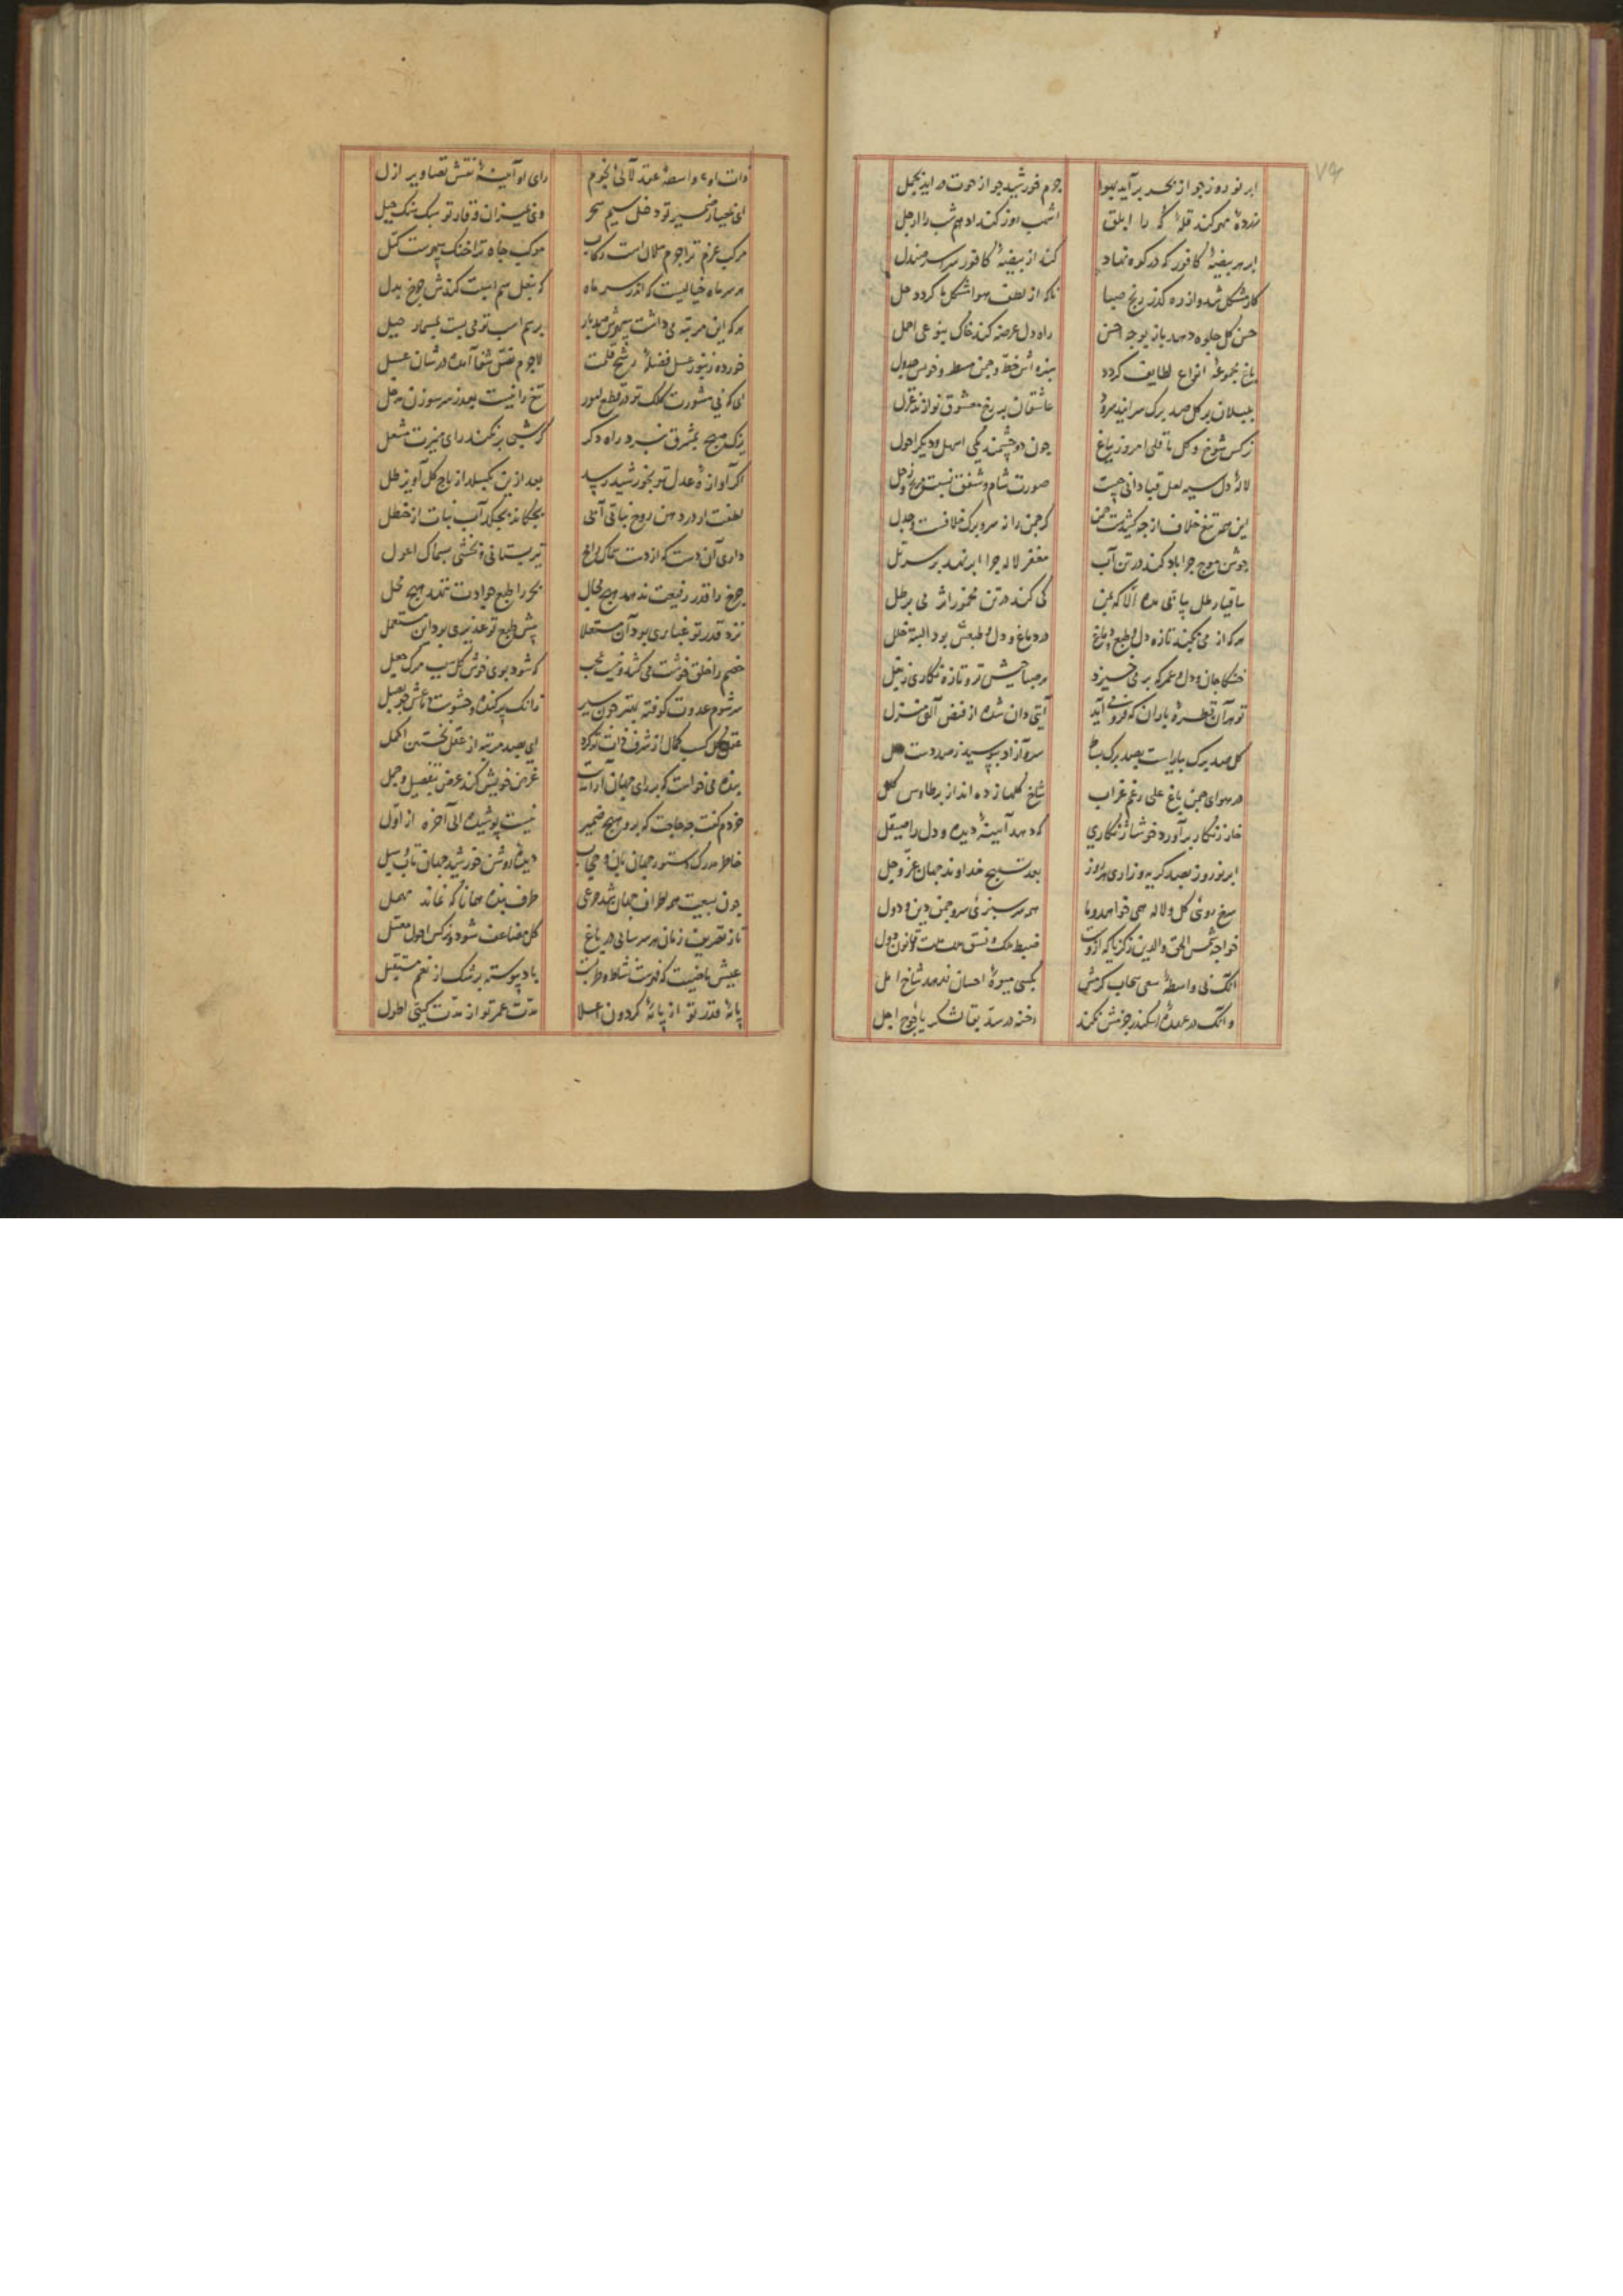 ابر نوروز جو از بحر برآید بهوا جرم خورشید جو از حوت در اید بحمل
اشهب روز کند ادهم شب را ارجل
کند از بیضهٔ کافور سراسر صندل
کار مشکل شد واز ره کذر رنج صبا تاکه از لطف هوا شکل ما کردد حل
حسن کل جلوه دهد باز بوجه احسن راه دل عرضه کند خاک بنوعی اجمل
باغ مجموعهٔ انواع لطایف کردد سبزه اش خط و جمن مسطر و جدول
بلبلان بر کل صد برک سرایند سرود عاشقان بر رخ معشوق نوازند غزل
نرکس شوخ و کل یاقلی امروز بباغ جون دو چشمند یکی اشهل ودیکر احول
لالهٔ دل سیه لعل قبا دانی چیست صورت شام و شفق نیست مریخ و زحل
این همه تیغ خلاف از چه کشیدست چمن که چمن را ز سر و برک خلافست و جدل
جوشن موج چرا باد کند در تن آب مغفر لاله چرا ابر نهد بر سر تل
ساقیا رطل پیاپی مده الا که بمن کی کند در تن مخمور اثر می برطل
هر که از می نکند تازه دل و طبع و دماغ در دماغ و دل و طبعش بود البته خلل
خنکا جان و دل و عمر که بر می خیزد هر صباحیش تر و تازه نکاری ز بغل
تو هر آن قطرهٔ باران که فرو می آید آیتی دان شده از فیض الهی منزل
کل صد برک بیاراست بصد برک بساط سرو آزاد ببوسید زهر دست
در هوای چمن باغ علی رغم غراب شاخ کلها زده انداز پر طاوس کلل
خار زنکار برآورد خوشا زنکاری که دهد آیینهٔ دیده و دل را صیقل
ابر نوروز بصد کریه و زاری هر روز بعد تسبیح خداوند جهان عز و جل
سرخ رویی کل و لاله همی خواهد و با هم سر سبزی سرو چمن دین و دول
خواجه شمس الحق والدین زکریا که ازوست ضبط ملک و نسق مملکت و قانون دول
آنک بی واسطهٔ سعی سحاب کرمش بکسی میوهٔ احسان ندهد شاخ امل
وانک در عهدهٔ اسکندر حزمش نکند رخنه در سد بقا لشکر یاجوج اجل
ذات او واسطهٔ عقد لآلی نجوم رای او آیینهٔ نقش تصاویر ازل
ای بحیاز ضمیر تو دخل سیم سحر وی بمیزان وقار تو سبک سنک جبل
مرکب عزم ترا جرم هلال است رکاب موکب جاه ترا خنک سپهرست کتل
هر سر ماه خیالیست که اندر سر ماه که بنعل سم اسبت کندش چرخ بدل
هر که این مرتبه می داشت سپهرش صد بار بر سم اسب تو می بست بمسمار حیل
خورده زنبور عسل فضلهٔ رشح قلمت لاجرم نقش شفا آمده در شان عسل
ای که بی مشورت کلک تو در قطع امور تیغ را نیست بقدر سر سوزن مدخل
زنک صبح بمشرق نبرد راه دکر کر شبی بر نکند رای منیرت مشعل
اکر آوازهٔ عدل تو بخورشید رسد بعد ازین نکسلد از تاج کل آویز طل
لطفت ار در دهن روح نباتی آنی بچکاند بچکد آب نبات از حنظل
داری آن دست که از دست سماک رامح تیر بستانی و بخشی بسماک اعزل
چرخ را قدر رفیعت ندهد هیچ مجال بحر را طبع جوادت ننهد هیچ محل
نزد قدر تو غباری بود آن مستعلا پیش طبع تو غدیری بود این مستعمل
خصم را خلق خوشت می کشد و نیست عجب که شود بوی خوش کل سبب مرک جعل
سر شوم عدوت کوفته بهتر چون سیر زانک پر کنده و حشوست دماغش چو بصل
عقل کل کسب کمال از شرف ذات تو کرد ای بصد مرتبه از عقل نخستین اکمل
بنده می خواست که بر رای جهان آرایت غرض خویش کند عرض بتفصیل و جمل
خردم کفت چه حاجت که برو هیچ ضمیر نیست پوشیده الی آخره از اول
خاطر مدرک دستور جهان تاب
چون بسعیت همه اطراف جهان شد مرعی طرف بنده همانا که نماند مهمل
تا ز تقدیر زمان هر سر سالی در باغ کل مضاعف شود و نرکس احول معتل
عیش ماضیت که فهرست نشاط و طربست باد پیوسته بر شک از نعم مستقبل
پایهٔ قدر تو از پایهٔ کردون اعلا مدت عمر تو از مدت کیتی اطول